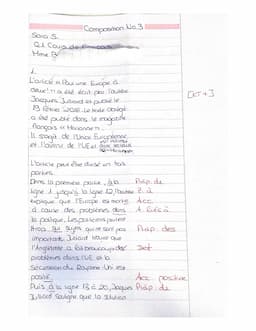 Composition No.3
Sara S.
Q1 Cours de
Mme B
1.
L'article « Pour une Europe à
deux ! » a été écrit par l'auteur
Jacques Julliard et publié le
13 Février 2016. Le texte abrégé
a été publié dans le magazine
français « Marianne ».
Il s'agit de l'Union Européenne
et l'avenir de l'UE
[KT + 3]
L'article peut être divisé en trois
parties.
Dans la première partie, à la Präp. de
ligne 1 jusqu'à la ligne 12, l'auteur à
explique que l'Europe est morte Acc
à cause des problèmes dans
la politique. Les positions peuvent
qui ne sont pas Präp. des
importants. Julliard trouve que
l'Angleterre a fait beaucoup des Det
problèmes dans l'UE et la
Sécession du Royaume-Uni est
positif. Acc positive
Puis à la ligne 13 à 20, Jacques Präp. de
Julliard souligne que la solution